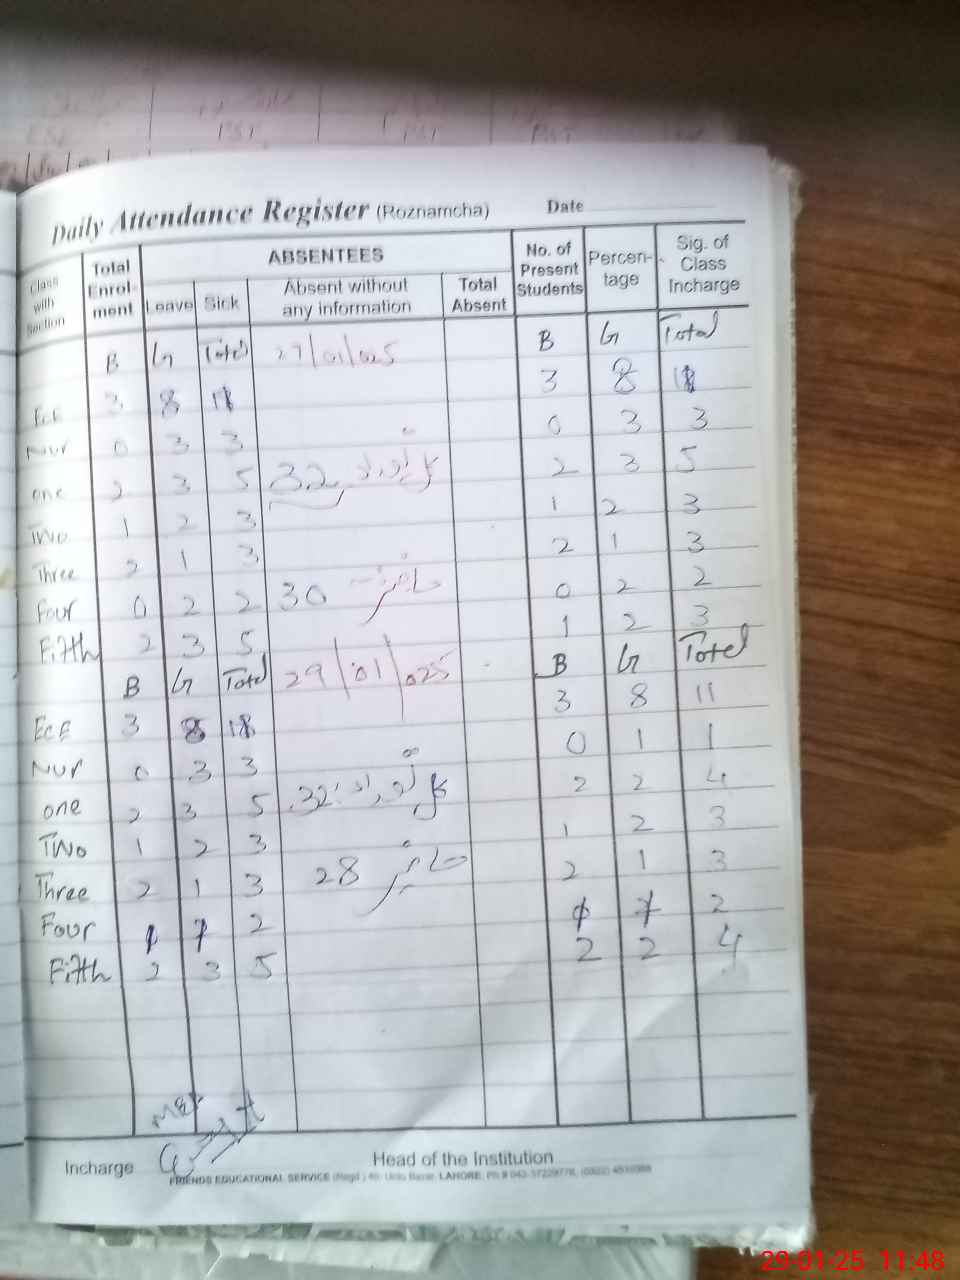 PST PST PST
Daily Attendance Register (Roznamcha) Date
Class with Section Total Enrol-ment ABSENTEES Leave Sick Absent without any information Total Absent No. of Present Students Percen-tage Sig. of Class Incharge
B G Total 27/01/025 B G Total
ECE 3 8 11 3 8 11
Nur 0 3 3 0 3 3
one 2 3 5 32 کل تعداد 2 3 5
TWo 1 2 3 1 2 3
Three 2 1 3 2 1 3
Four 0 2 2 30 حاضر 0 2 2
Fifth 2 3 5 1 2 3
B G Total 29/01/025 B G Total
ECE 3 8 11 3 8 11
Nur 0 3 3 0 1 1
one 2 3 5 32 کل تعداد 2 2 4
TWo 1 2 3 1 2 3
Three 2 1 3 28 حاضر 2 1 3
Four 1 1 2 1 1 2
Fifth 2 3 5 2 2 4
Incharge Head of the Institution
FRIENDS EDUCATIONAL SERVICE (Regd.) 40- Urdu Bazar, LAHORE.
29-01-25 11:48